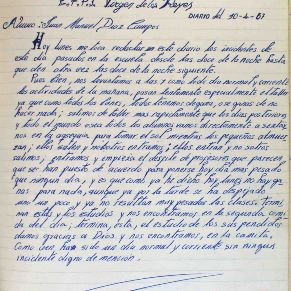 E.F.P.I. Virgen de los Reyes
DIARIO del 10-4-67
Alumno: Juan Manuel Diaz Campos
Hoy lunes me toca redactar en este diario los incidentes de
este dia pasados en la escuela desde las doce de la noche hasta
las doce de la noche siguiente.
Pues bien, nos levantamos a las 7 como todo dia normal y corriente
las actividades de la mañana, pasan lentamente especialmente el taller
ya que como todos los lunes, todos tenemos desgana, o sea ganas de no
hacer nada; salimos de taller mas rapidamente que los dias posteriores
y todo el mundo o sea todos los alumnos vamos directamente a sentar
nos en el para tomar el sol mientras los pequeños almuer
zan; ellos salen y nosotros entramos; ellos entran y no sotros
salimos, entramos y empieza el desfile de profesores que parecen
que se han puesto de acuerdo para ponerse hoy dia mas pesado
que ningun dia, y es que como ya he dicho hoy lunes no hay ga
nas para nada, aunque ya por la tarde se ha despejado
uno un poco y ya no resultan muy pesadas las clases. Termi
nan estas y los estudios y nos encontramos en la segunda comi
da del dia; termina esta, el estudio de los suspendidos,
damos gracias a Dios y nos encontramos, en la camita.
Como ven ha sido un dia normal y corriente sin ningun
incidente digno de mención.